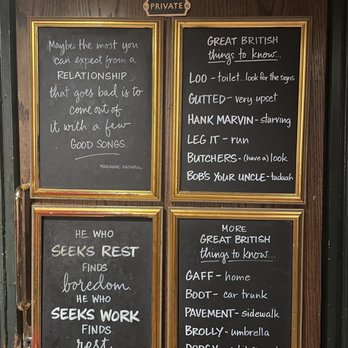 PRIVATE
Maybe the most you
can expect from a
RELATIONSHIP
that goes bad is to
come out of
it with a few
GOOD SONGS.
MARIANNE FAITHFULL
GREAT BRITISH
things to know...
LOO - toilet...look for the signs
GUTTED - very upset
HANK MARVIN - starving
LEG IT - run
BUTCHERS - (have a) look
BOB'S YOUR UNCLE - tadaah
HE WHO
SEEKS REST
FINDS
boredom.
HE WHO
SEEKS WORK
FINDS
rest.
MORE
GREAT BRITISH
things to know...
GAFF - home
BOOT - car trunk
PAVEMENT - sidewalk
BROLLY - umbrella